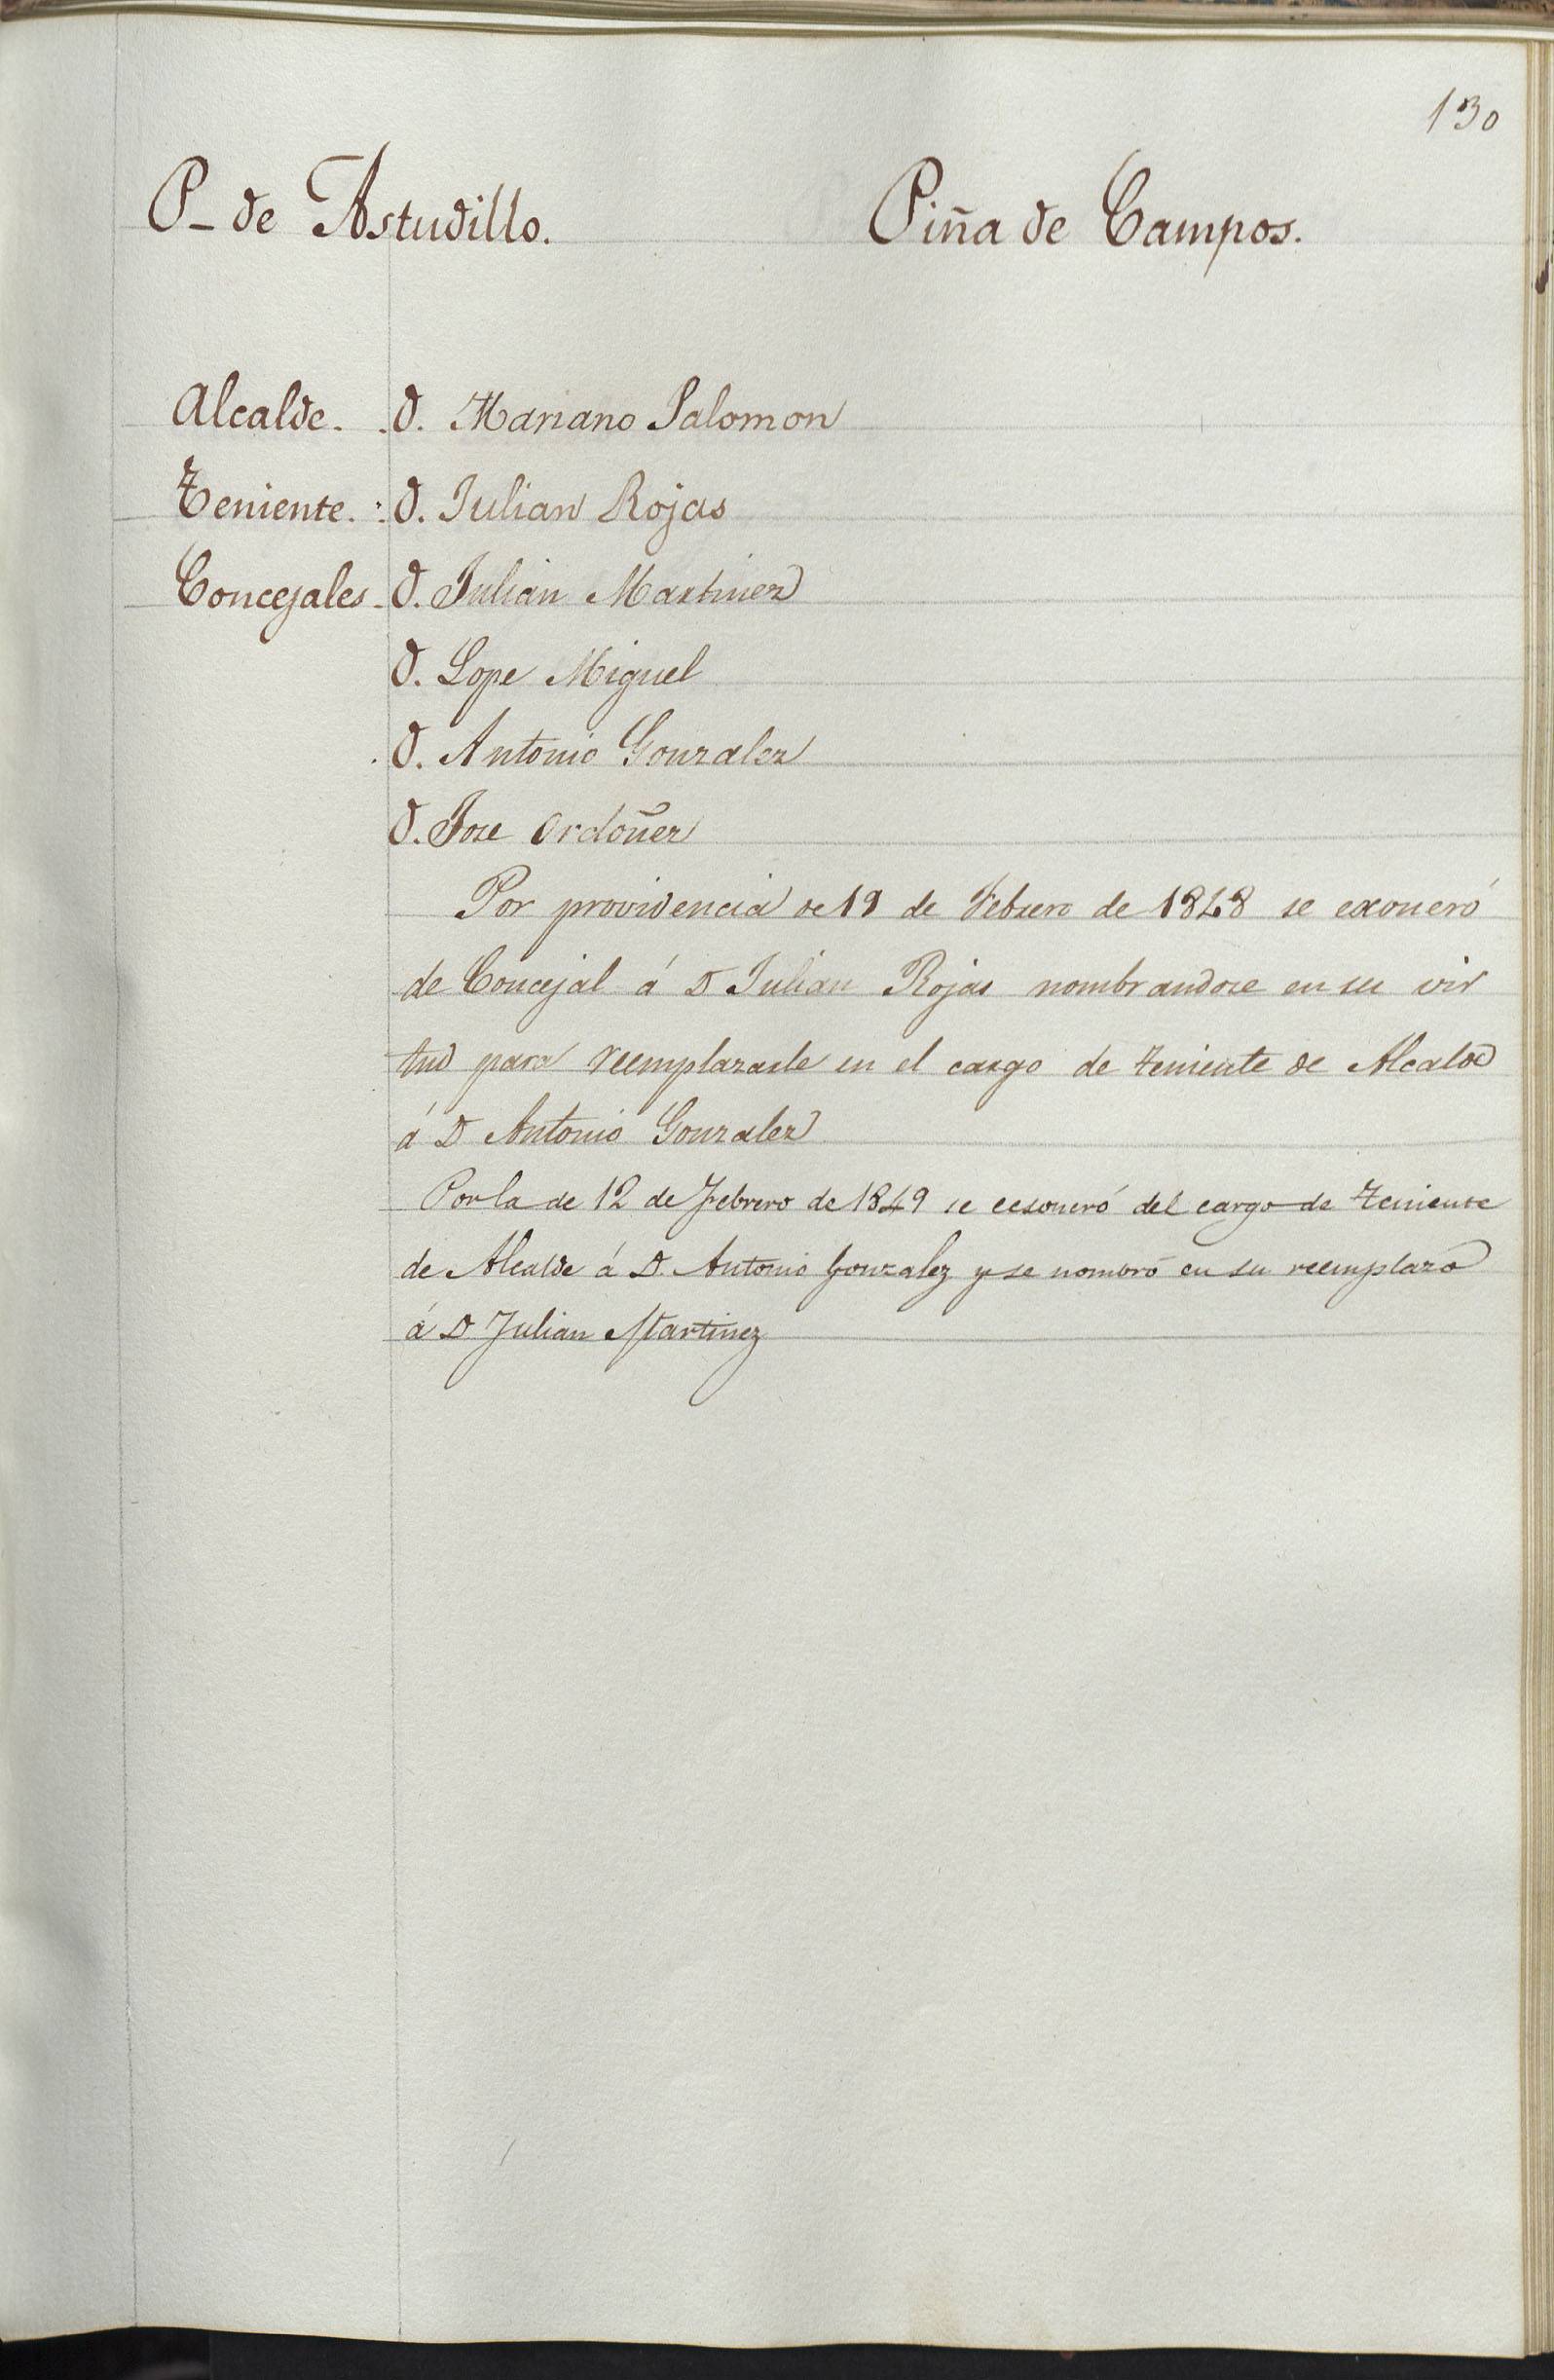 130
P- de Astudillo. Piña de Campos.
Alcalde. D. Mariano Salomon
Teniente. D. Julian Rojas
Concejales D. Julian Martinez
D. Lope Miguel
D. Antonio Gonzalez
D. Jose Ordoñez
Por providencia de 19 de Febrero de 1848 se exoneró
de Concejal á D Julian Rojas nombrandose en su vir
tud para reemplazarle en el cargo de teniente de Alcalde
á D Antonio Gonzalez
Por la de 12 de Febrero de 1849 se ecsoneró del cargo de Teniente
de Alcalde á D. Antonio Gonzalez y se nombró en su reemplazo
á D Julian Martinez